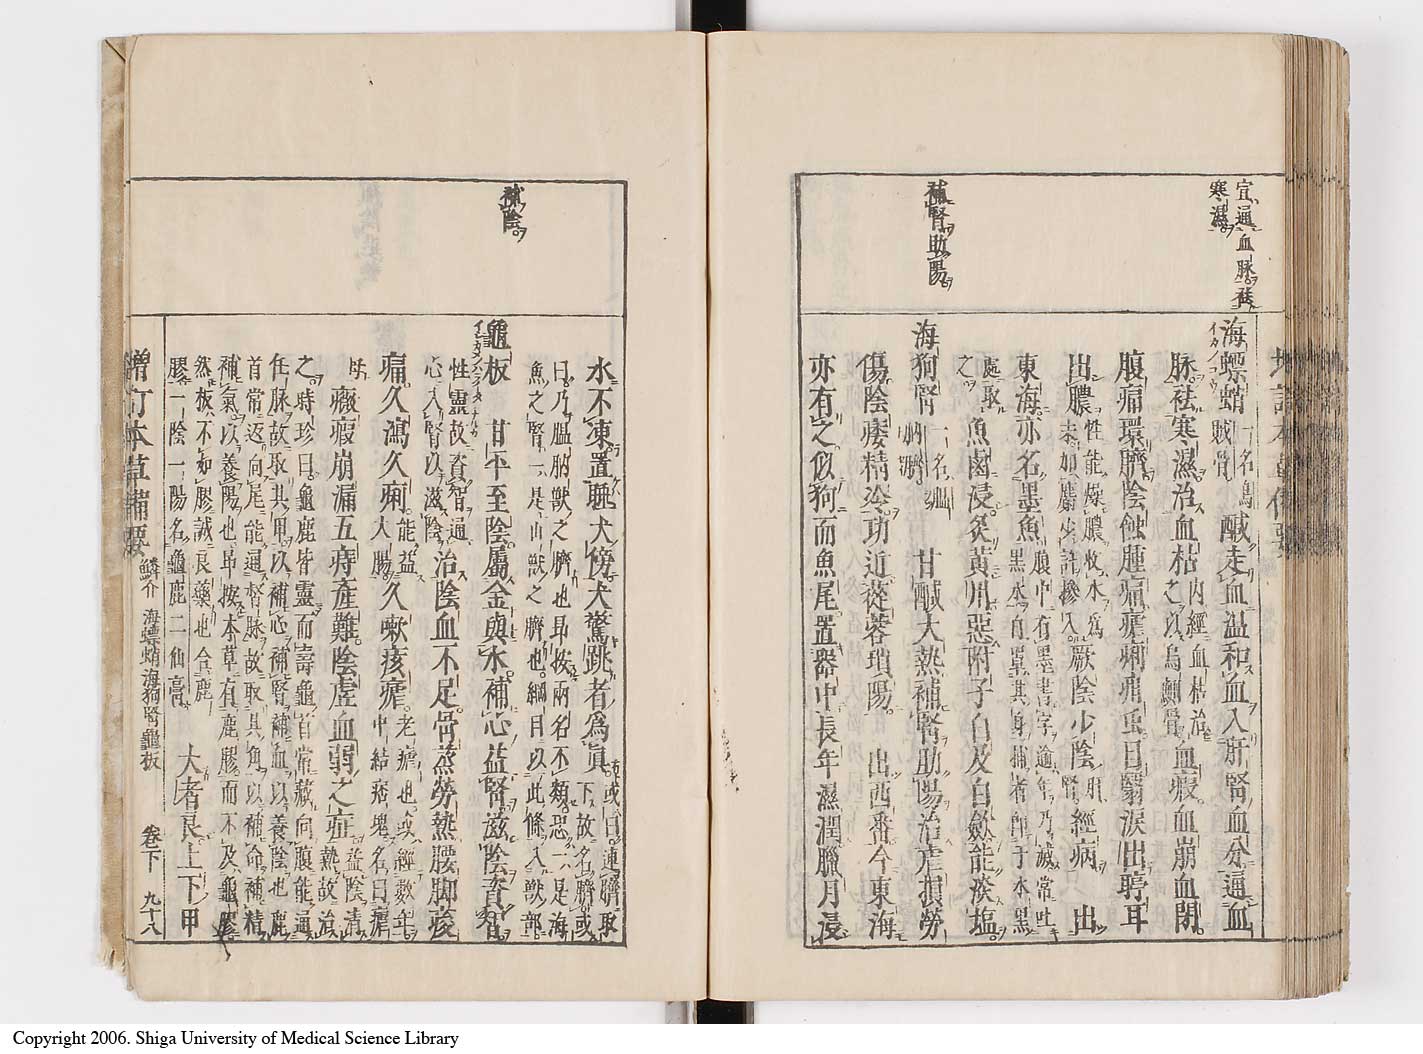 宜通血脉祛
寒濕
補腎助陽
海螵蛸 一名烏賊骨 鹹走血温和血入肝腎血分通血
イカノコウ
脉祛寒濕治血枯 内經血枯治之以烏鰂骨 血瘕血崩血閉
腹痛環臍陰蝕腫痛瘧痢疳虫目翳淚出聤耳
出膿 性能燥膿收水爲末加麝少許摻入 厥陰少陰 肝腎 經病 出
東海亦名墨魚 腹中有墨書字逾年乃滅常吐黑水自罩其身捕者即于水黑處取之
魚鹵浸炙黄用惡附子白及白斂能淡塩
海狗腎 一名膃肭臍 甘鹹大熱補腎助陽治虚損勞
傷陰痿精冷功近蓯蓉瑣陽 出西番今東海
亦有之似狗而魚尾置器中長年濕潤臘月浸
補陰
水不凍置睡犬傍犬驚跳者爲眞 或曰連臍取下故名臍或
曰乃膃肭獸之臍也昂按兩名不類恐一是海
魚之腎一是山獸之臍也綱目以此條入獸部
龜板 甘平至陰屬金與水補心益腎滋陰資智
性靈故資智通心入腎以滋陰 治陰血不足骨蒸勞熱腰脚痠
痛久瀉久痢 能益大腸 久嗽痎瘧 老瘧也或經數年中結痞塊名曰瘧母
癥瘕崩漏五痔產難陰虚血弱之症 益陰清熱故治
之時珍曰龜鹿皆靈而壽龜首常藏向腹能通
任脉故取其甲以補心補腎補血以養陰也鹿
首常返向尾能通督脉故取其角以補命補精
補氣以養陽也昂按本草有鹿膠而不及龜膠
然板不如膠誠良藥也合鹿
膠一陰一陽名龜鹿二仙膏 大者良上下甲
增訂本草備要 鱗介 海螵蛸海狗腎龜板 卷下 九十八
Copyright 2006. Shiga University of Medical Science Library